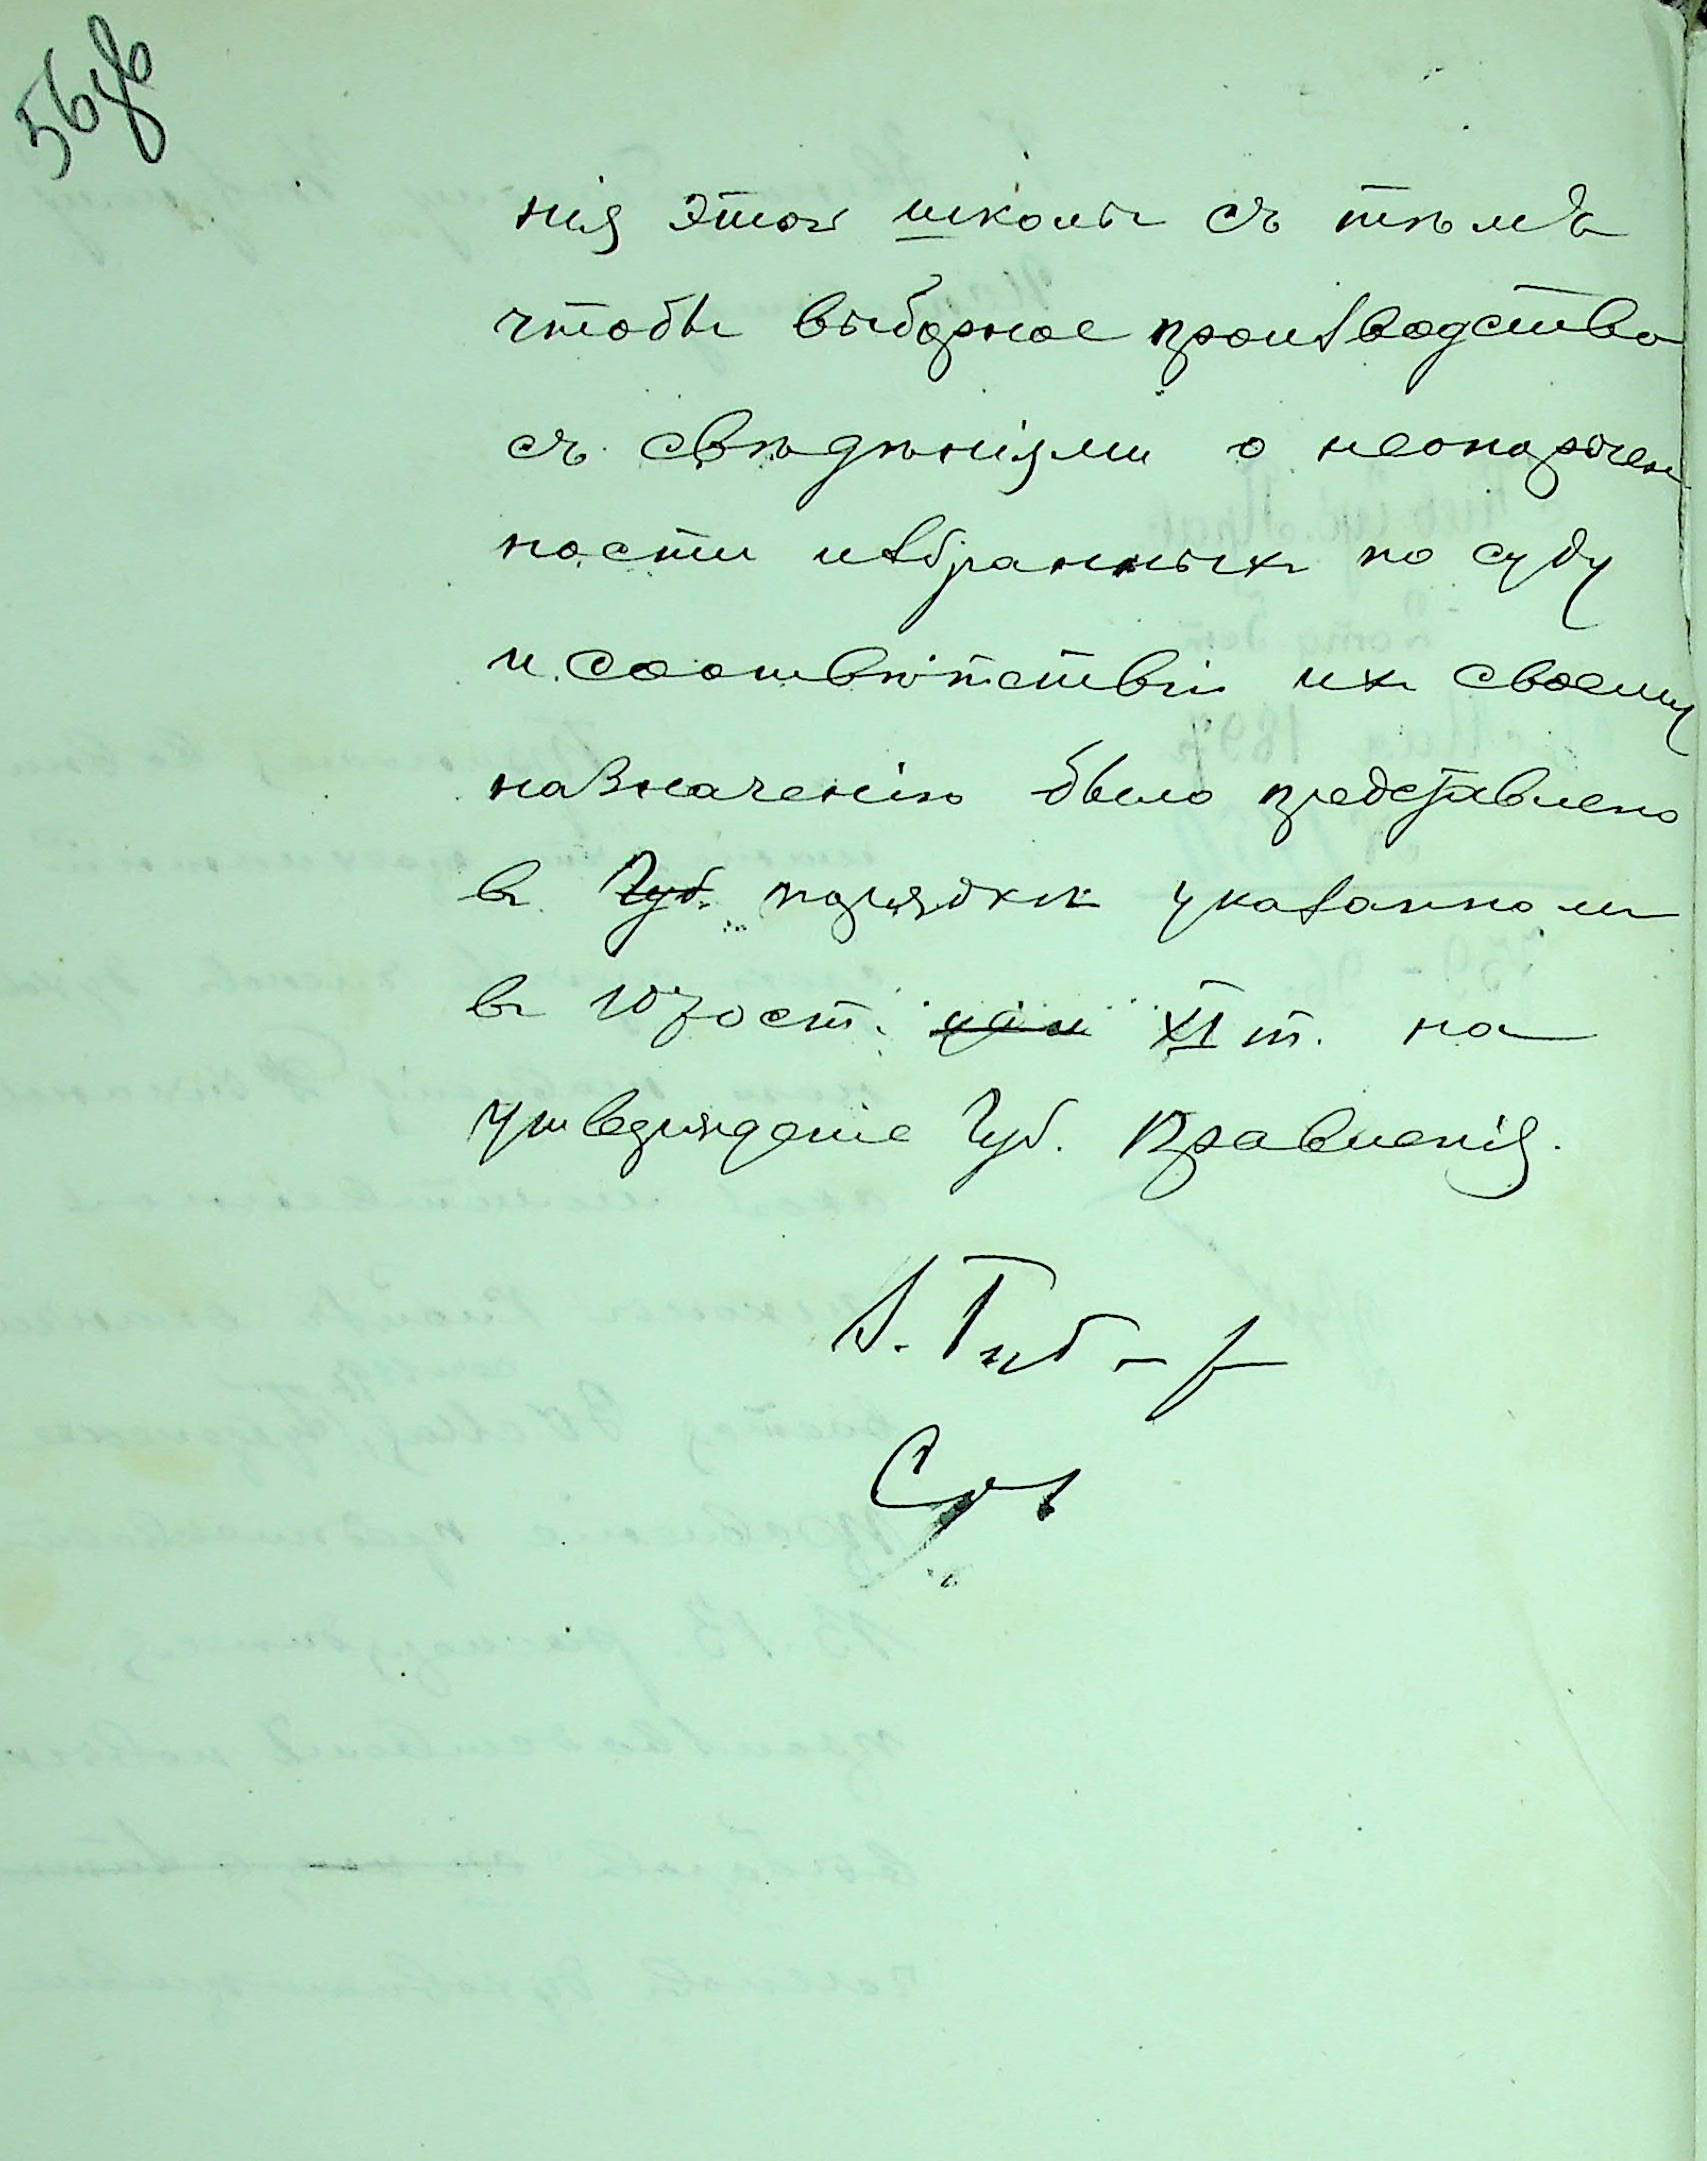 56об
нія этой школы съ тѣмъ
чтобы выборное производство
съ свѣдѣніями о неопорочен
ности избранныхъ по суду
и соотвѣтствіи ихъ своему
назначенію было представлено
въ Губ. порядкѣ указанномъ
въ 1070 ст. XI т. на
утвержденіе Губ. Правленія.